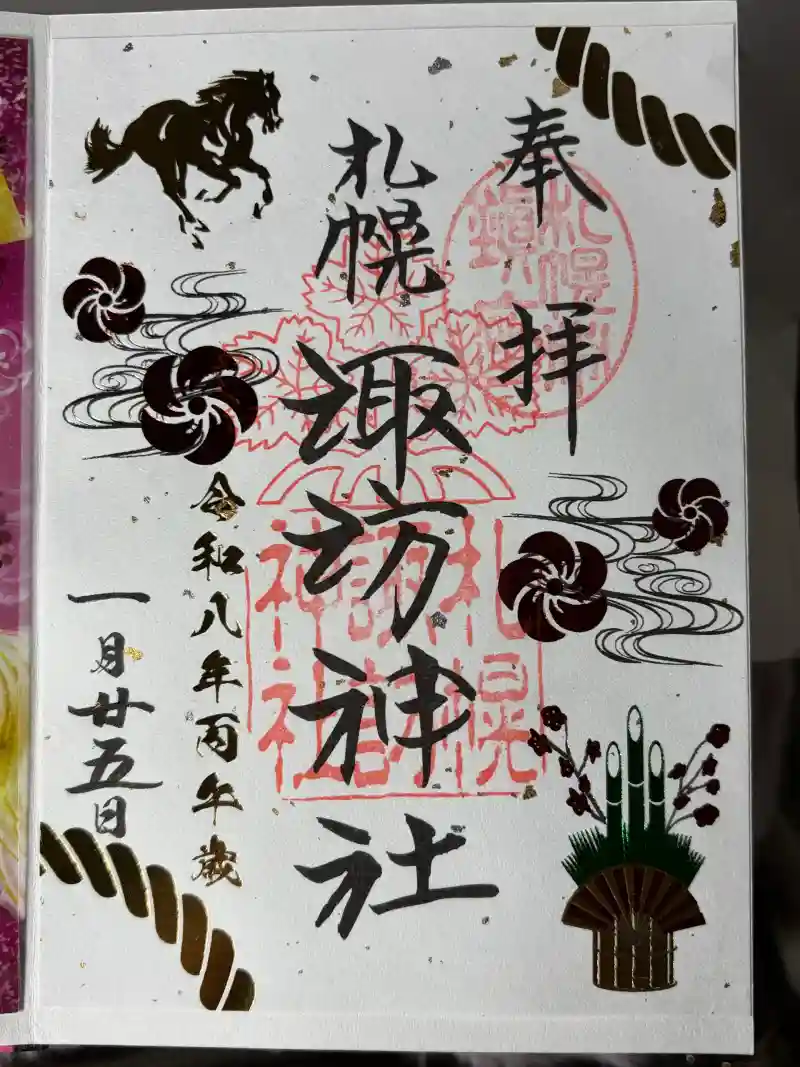 奉拝
札幌
諏坊神社
令和八年丙午歳
一月廿五日
札幌
諏訪
神社